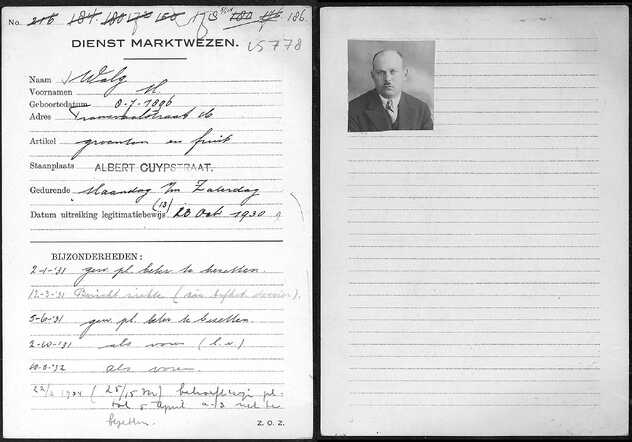 No. 216 184 180 150 178 180 186.
DIENST MARKTWEZEN.
V5778
Naam Walg
Voornamen M
Geboortedatum 8-7-1896
Adres Transvaalstraat
Artikel groenten en fruit
Staanplaats ALBERT CUYPSTRAAT.
Gedurende Maandag t/m Zaterdag
(13)
Datum uitreiking legitimatiebewijs 20 Oct 1930
BIJZONDERHEDEN:
2-1-'31 gew. pl. beter te bezetten.
12-3-'31 Bericht
5-6-'31 gew. pl. beter te bezetten.
2-10-'31 als voren
als voren.
22/2 1934 (25/15 M) behoeft zijn pl.
tot 5 April a.s. niet te
bezetten.
Z.O.Z.